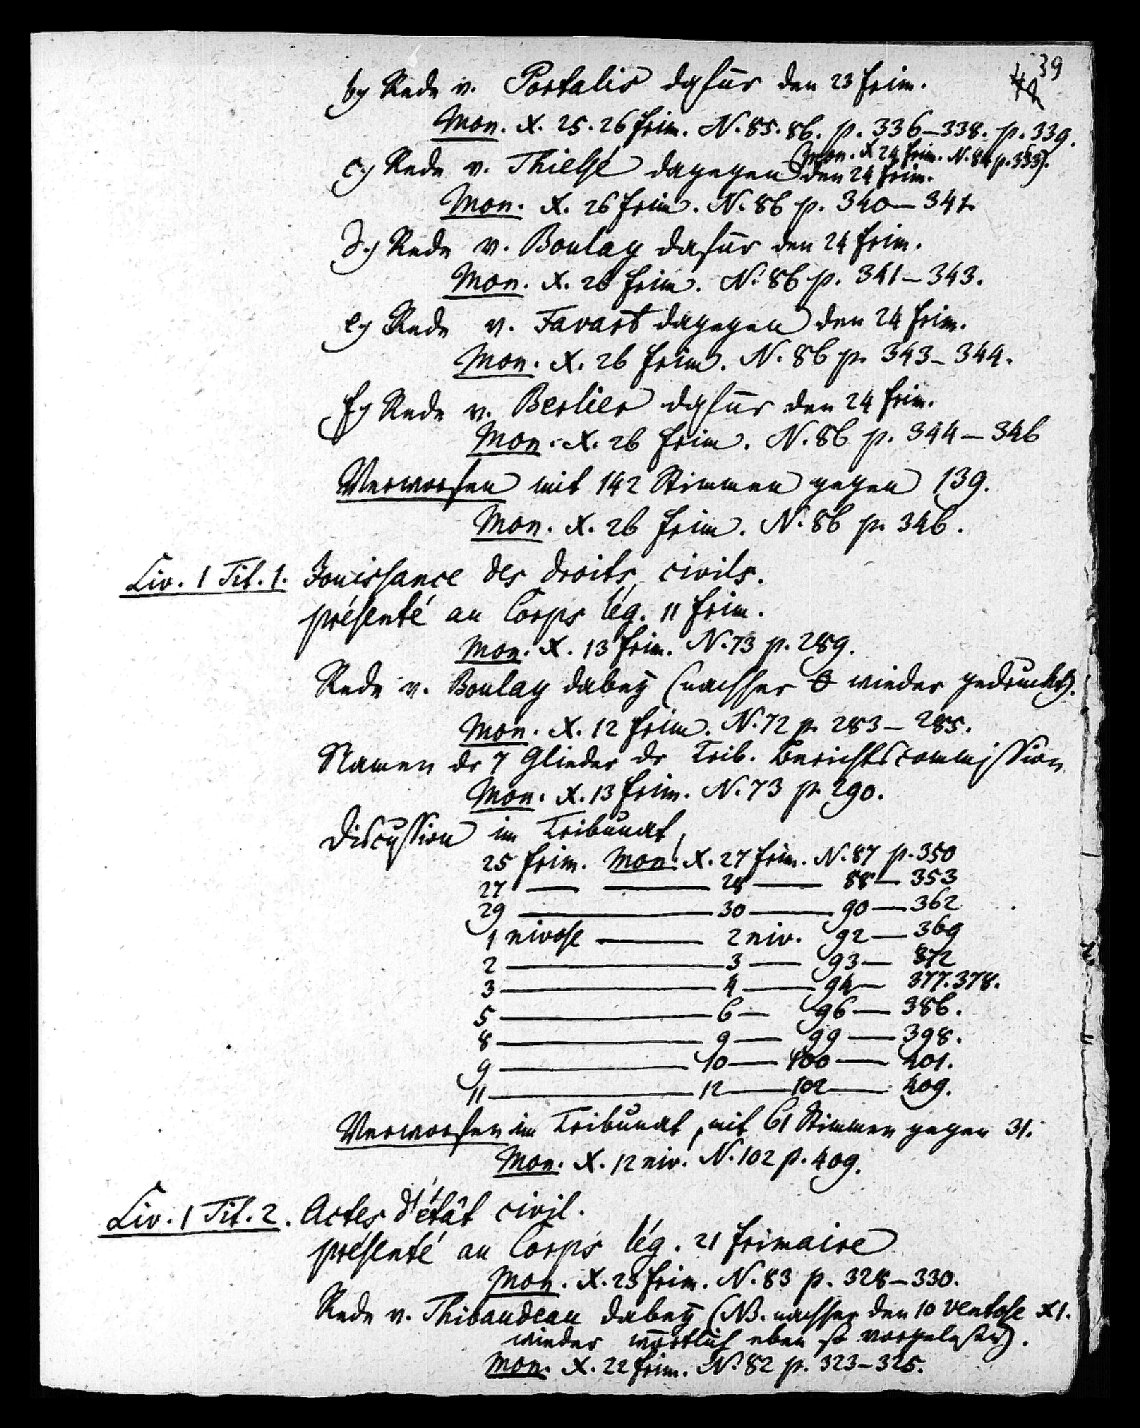 39
b) Rede v. Portalis dafür den 23 frim.
Mon. X. 25. 26 frim. N. 85. 86. p. 336–338. p. 339.
(Mon. X 24 frim. N. 84 p. 333).
c) Rede v. Thiessé dagegen den 24 frim.
Mon. X. 26 frim. N. 86 p. 340–341.
d.) Rede v. Boulay dafür den 24 frim.
Mon. X. 26 frim. N. 86 p. 341–343.
e) Rede v. Favart dagegen den 24 frim.
Mon. X. 26 frim. N. 86 p. 343–344.
f) Rede v. Berlier dafür den 24 frim.
Mon. X. 26 frim. N. 86 p. 344–346
Verworfen mit 142 Stimmen gegen 139.
Mon. X. 26 frim. N. 86 p. 346.
Liv. 1 Tit. 1. Jouissance des droits civils.
présenté au Corps lég. 11 frim.
Mon. X. 13 frim. N. 73 p. 289.
Rede v. Boulay dabey (nachher wieder gedruckt).
Mon. X. 12 frim. N. 72 p. 283–285.
Namen der 7 Glieder der Trib. Berichtscommission
Mon. X. 13 frim. N. 73 p. 290.
Discussion im Tribunat
25 frim. Mon. X. 27 frim. N. 87 p. 350
27 — — 28 — 88 — 353
29 — 30 — 90 — 362
1 nivose — 2 niv. 92 — 369
2 — 3 — 93 — 372
3 — 4 — 94 — 377. 378.
5 — 6 — 96 — 386.
8 — 9 — 99 — 398.
9 — 10 — 100 — 401.
11 — 12 — 102 — 409.
Verworfen im Tribunat, mit 61 Stimmen gegen 31.
Mon. X. 12 niv. N. 102 p. 409.
Liv. 1 Tit. 2. Actes d'état civil.
présenté au Corps lég. 21 frimaire
Mon. X. 23 frim. N. 83 p. 328–330.
Rede v. Thibaudeau dabey (NB. nachher den 10 ventose XI.
wieder wörtlich eben so vorgelesen).
Mon. X. 22 frim. N. 82 p. 323–325.